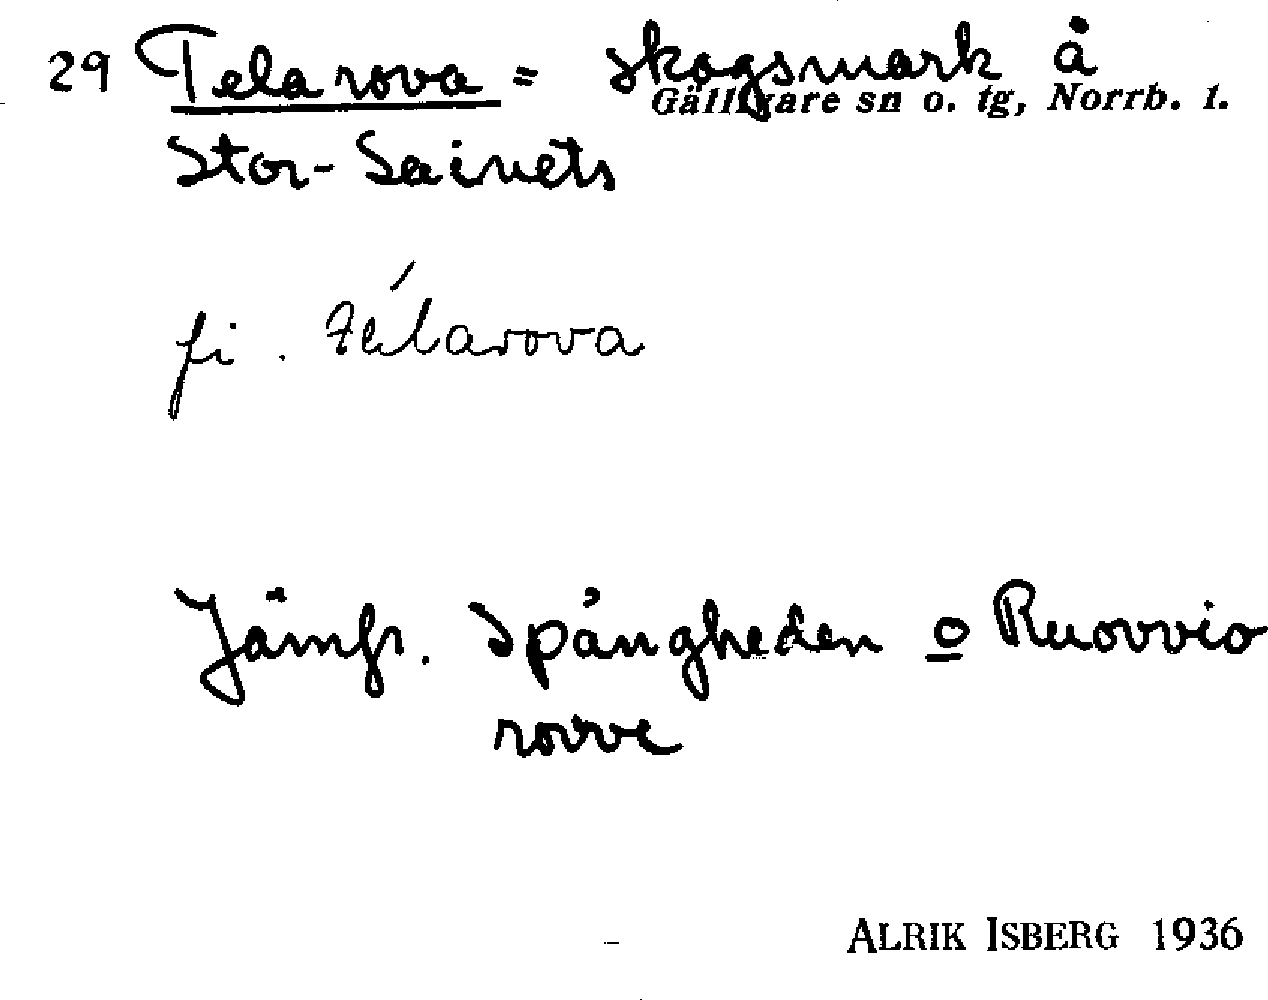 29 Telarova = skogsmark å
Gällivare sn o. tg, Norrb. l.
Stor-Saivets
fi. télarova
Jämfr. Spångheden o Ruovvio
rovve
ALRIK ISBERG 1936